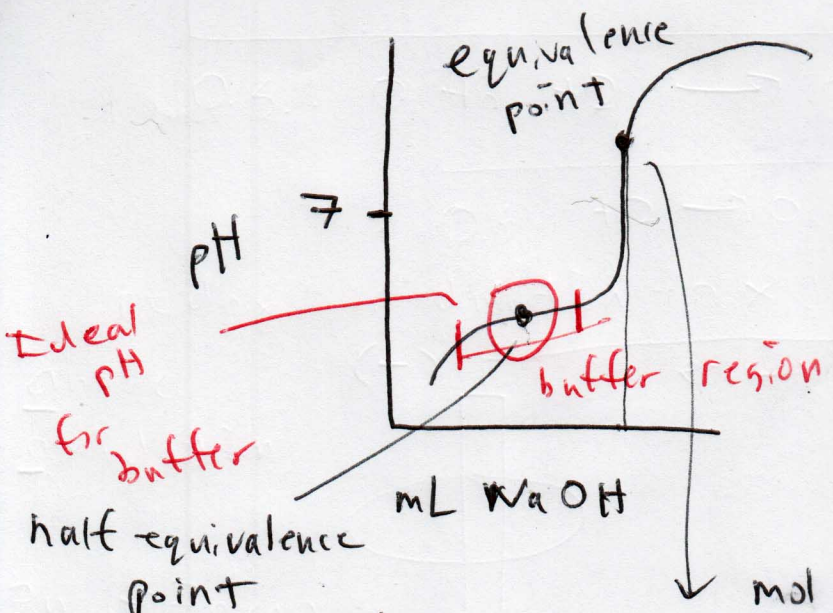 equivalence
point
7
pH
Ideal
pH
for
buffer
buffer region
mL NaOH
half equivalence
point
mol